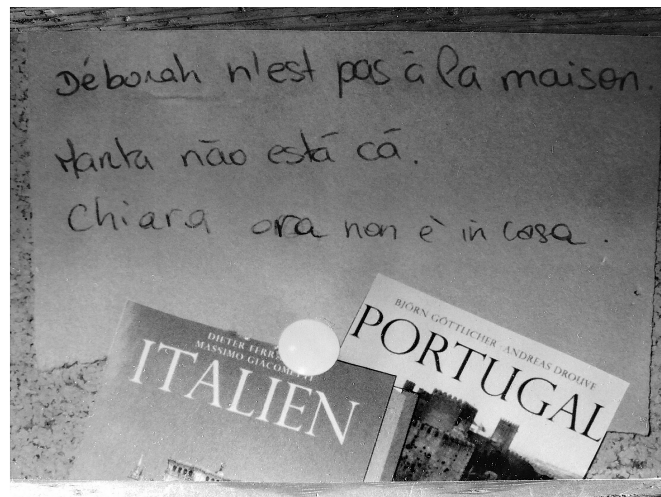 Déborah n'est pas à la maison.
Marta não está cá.
Chiara ora non è in casa.
DIETER
MASSIMO
ITALIEN
BJÖRN GÖTTLICHER · ANDREAS DROUVE
PORTUGAL